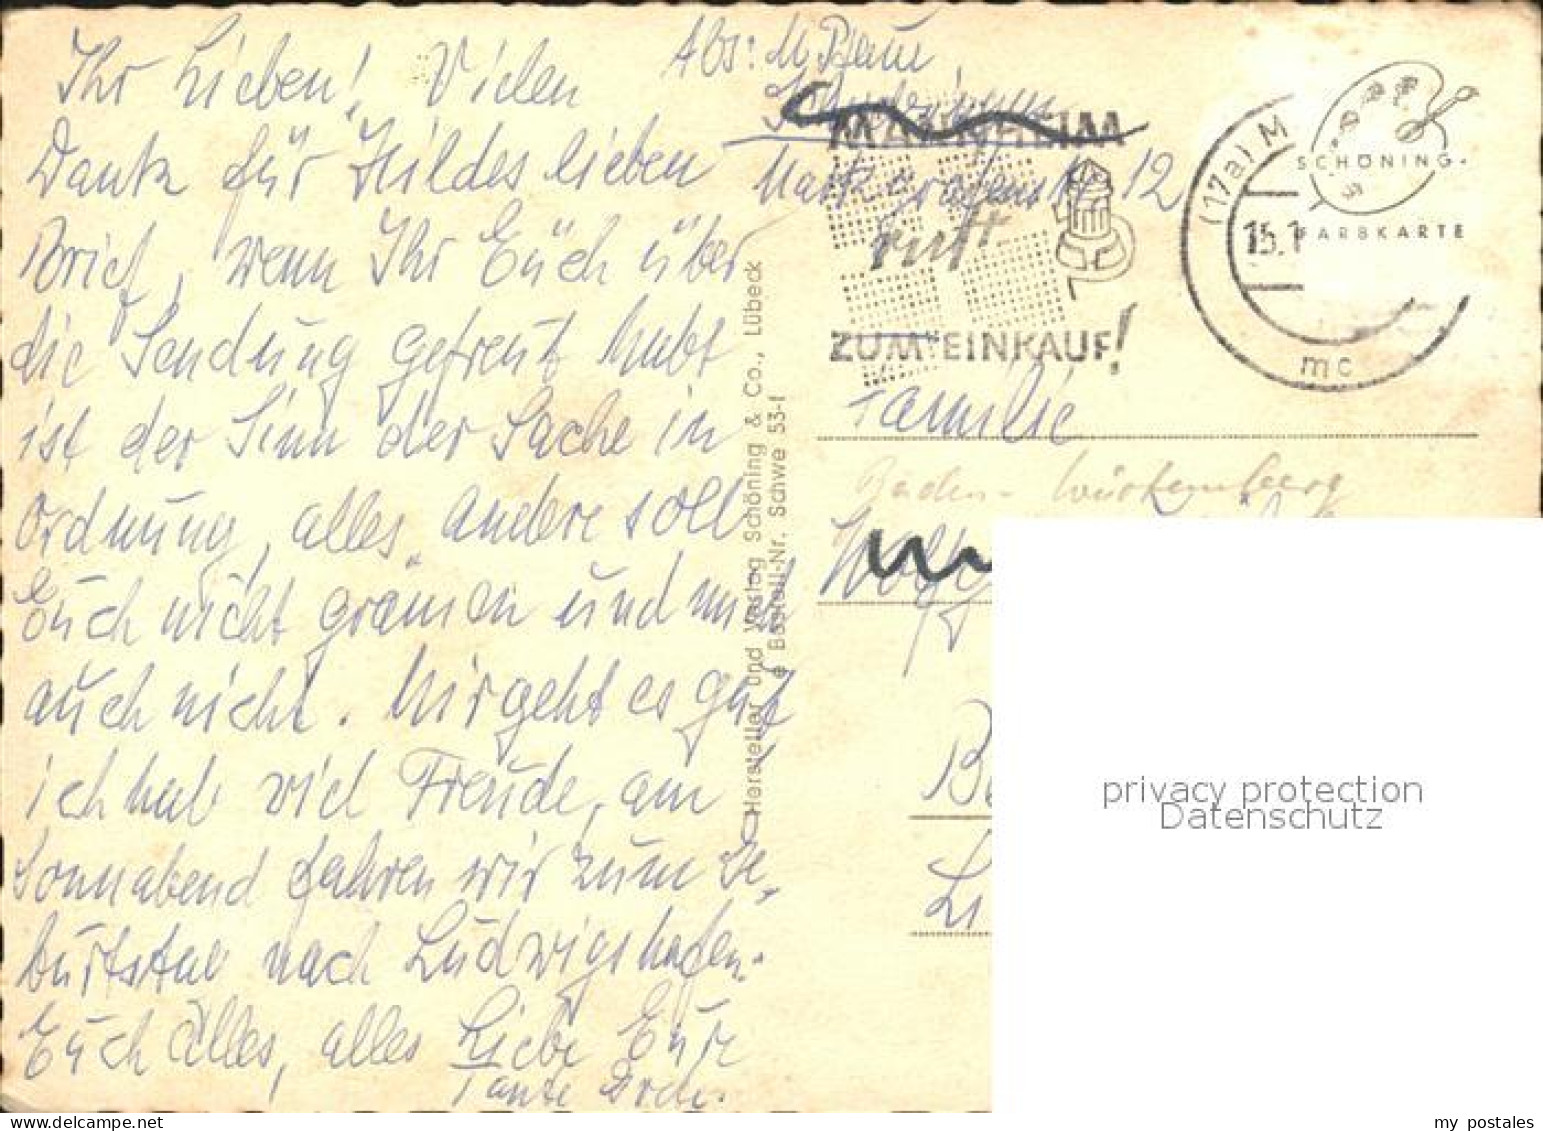 Ihr Lieben! Vielen
Dank für Hildes lieben
Brief, wenn Ihr Euch über
die Sendung gefreut habt
ist der Sinn der Sache in
Ordnung, alles andere soll
Euch nicht grämen und mich
auch nicht. Mir geht es gut
ich hab viel Freude, am
Sonnabend fahren wir zum Ge-
burtstag nach Ludwigshafen.
Euch alles, alles Liebe Eure
Tante
Abs: M. Pflaum
Schwetzingen
Markgrafenstr. 12
MANNHEIM
ruft
ZUM EINKAUF!
(17a) M
15.1
mc
SCHÖNING-
FARBKARTE
Familie
Baden-Württemberg
Hersteller und Verlag Schöning & Co., Lübeck
Bestell-Nr. Schwe 53-f
privacy protection
Datenschutz
my postales